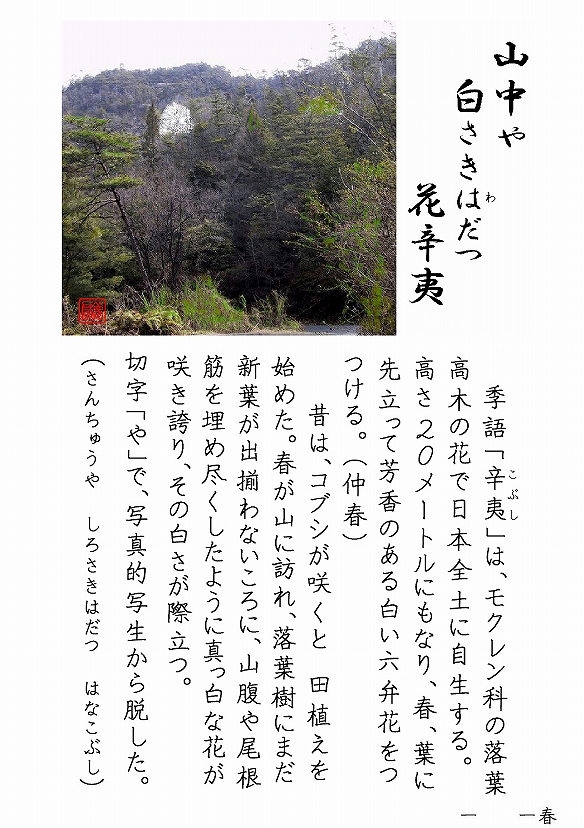 山中や
白さきはだつ
わ
花辛夷
季語「辛夷」は、モクレン科の落葉
こぶし
高木の花で日本全土に自生する。
高さ20メートルにもなり、春、葉に
先立って芳香のある白い六弁花をつ
つける。(仲春)
昔は、コブシが咲くと　田植えを
始めた。春が山に訪れ、落葉樹にまだ
新葉が出揃わないころに、山腹や尾根
筋を埋め尽くしたように真っ白な花が
咲き誇り、その白さが際立つ。
切字「や」で、写真的写生から脱した。
(さんちゅうや　しろさきはだつ　はなこぶし)
春一　一